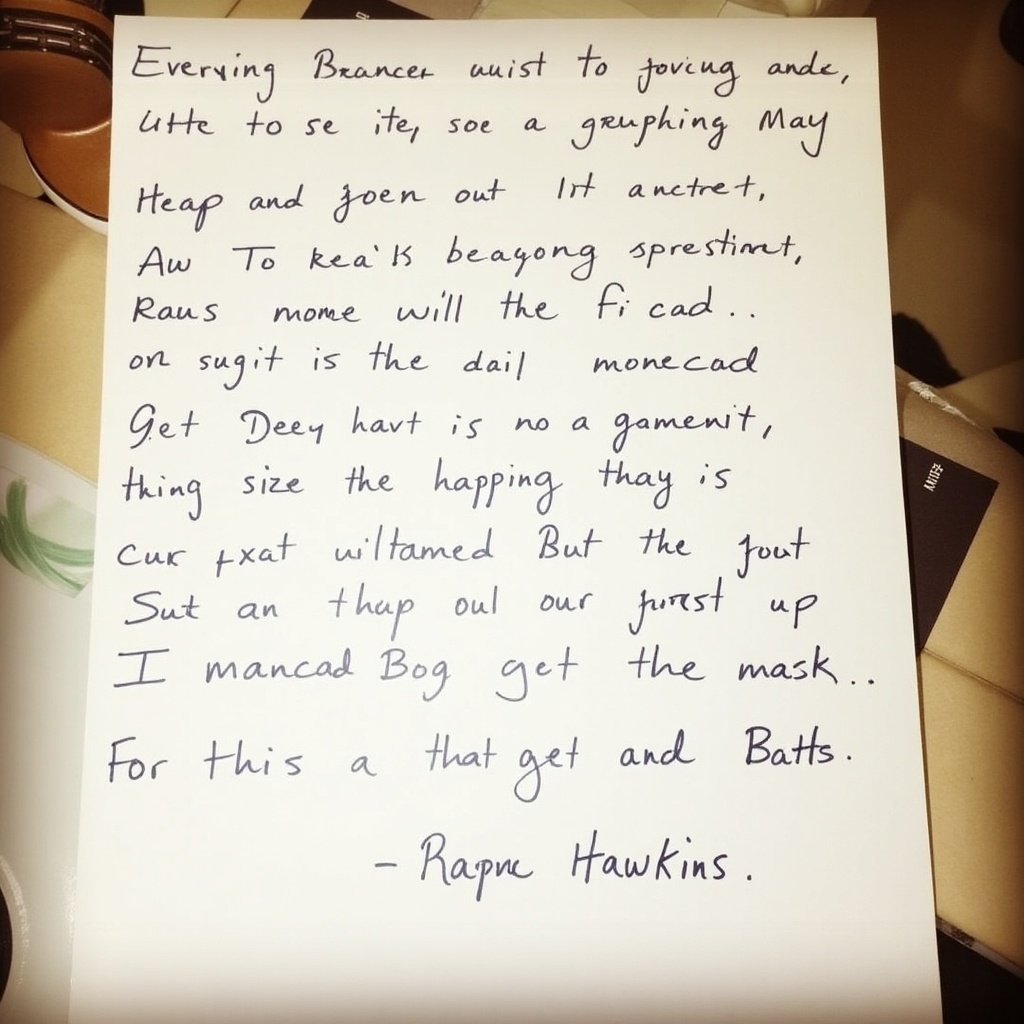 Everying Brancer uuist to joving ande,
Utte to se ite, soe a gruphing May
Heap and joen out Irt anctret,
Aw To kea'k beagong sprestinnt,
Raus mome will the fi cad..
on sugit is the dail monecad
Get Deey havt is no a gamenit,
thing size the happing thay is
cur fxat uiltamed But the jout
Sut an thap oul our up
I mancad Bog get the mask..
For this a that get and Batts.
- Rapne Hawkins.